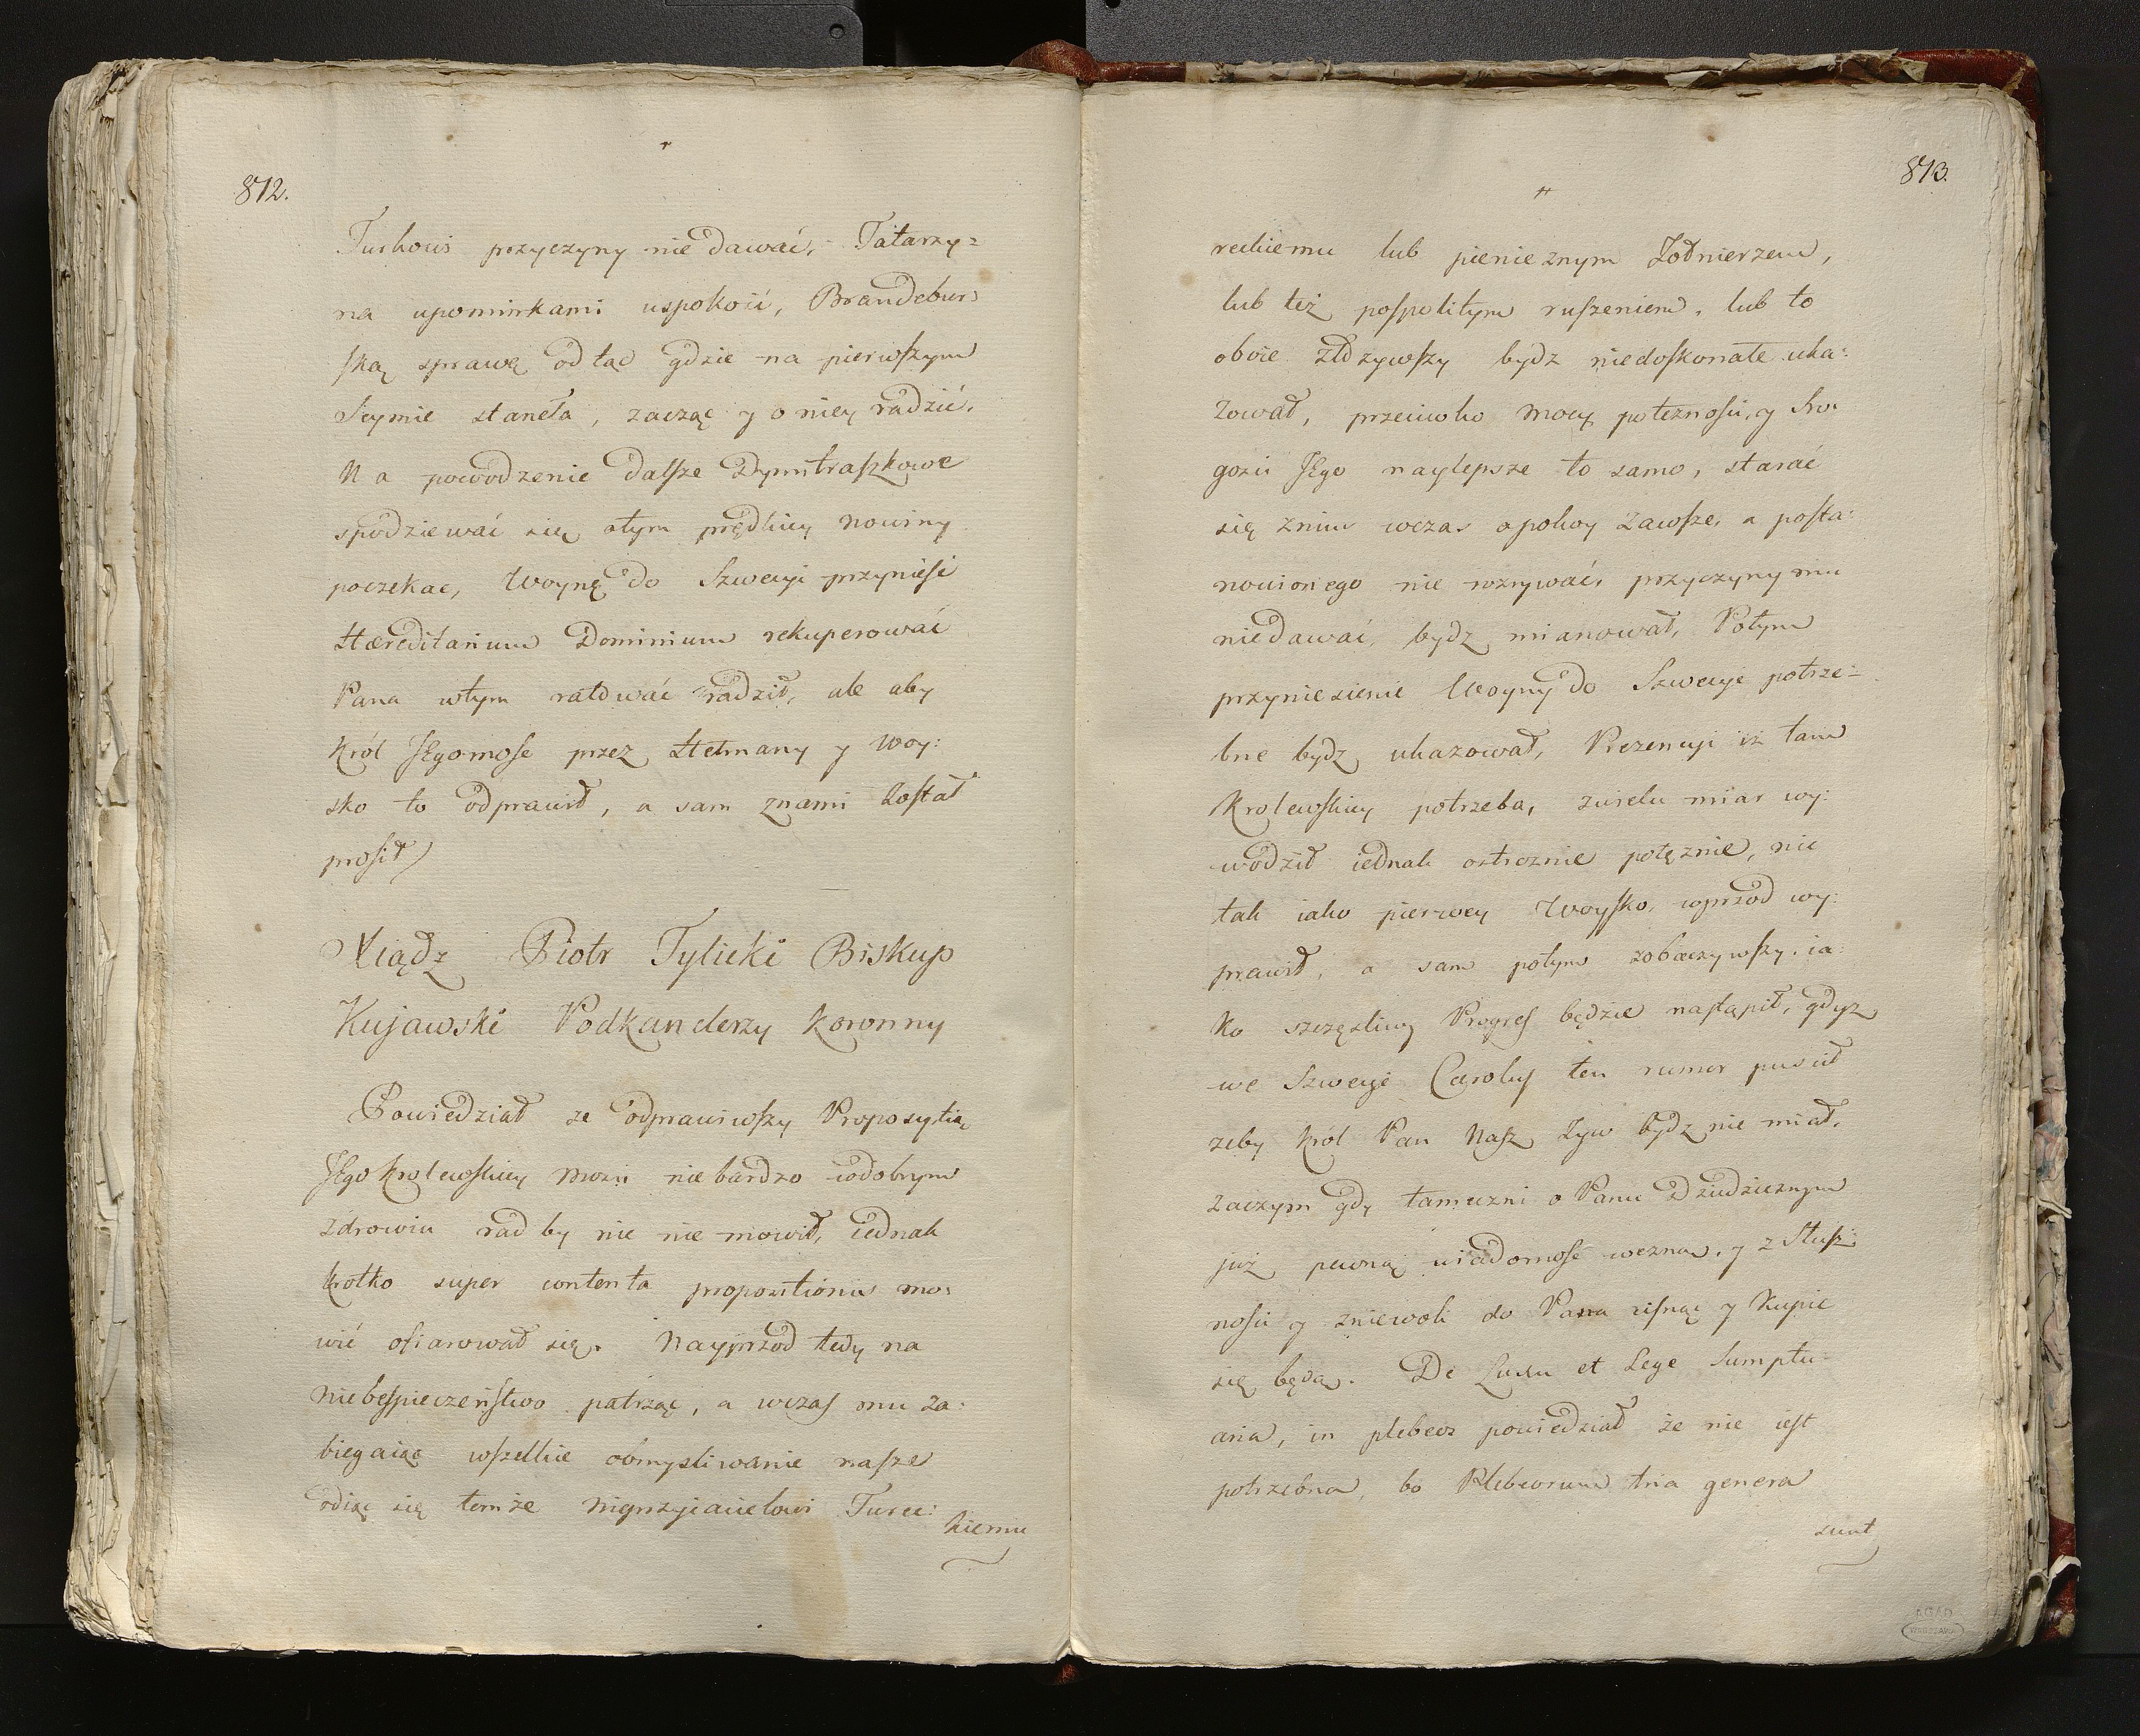 812.
Turkowi przyczyny nie dawać, Tatarzy=
na upominkami uspokoić, Brandebur=
ską sprawę odłąć gdzie na pierwszym
Seymie stanęła, zacząc y o niey radzić.
Na powodzenie dalsze Dymitraszkowe
spodziewać się otym prędkiey nowiny
poczekac, Woynę do Szwecyi przynieść
Hæreditarium Dominium rekuperować
Pana wtym ratować radził, ale aby
Król JEgomosc przez Hetmany y Woy:
sko to odprawił, a sam znami został
prosił)
Xiądz Piotr Tylicki Biskup
Kujawski Podkanclerzy Koronny
Powiedział że odprawiwszy Propozytią
JEgo Krolewskiey Mości nie bardzo wdobrym
zdrowiu rad by nic nie mowił, iednak
krotko super contenta propozitionis mo:
wić ofiarował się. Nayprzod tedy na
niebespieczeństwo patrząc, a wczas mu za:
biegaiąc wszelkie obmysliwanie nasze
odiąc się temże Nieprzyiacielowi Turec:
kiemu
813.
reckiemu lub pienieznym Zołnierzem,
lub też pospolitym ruszeniem, lub to
oboie złozywszy bydz niedoskonałe uka:
zował, przeciwko mocy potęznosci, y Sro:
gosci JEgo naylepsze to samo, starać
się znim wczas o pokoy zawsze, a posta:
nowionego nie wzrywać, przyczyny mu
niedawać, bydz mianował, Potym
przyniesienie Woyny do Szwecyi potrze=
bne bydz ukazował, Prezencyi iż tam
Krolewskiey potrzeba, zwielu miar wy:
wodził iednak ostroznie potęznie, nie
tak iako pierwey Woysko, wprzod wy:
prawił, a sam potym zobaczywszy, ia:
ko szczęsliwy Progres będzie nastąpił, gdysz
we Szwecyi Carolus ten rumor puscił
zeby Król Pan Nasz żyw bydz nie miał.
Zaczym gdy tameczni o Panu Dziedzicznym
już pewną wiadomość wezną, y z Słusz:
nosci y zniewoli do Pana cisnąć y kupić
się będą. De Luxu et Lege Sumptu=
aria, in plebeos powiedział że nie iest
potrzebna, bo Plebeorum tria genera
sunt
AGAD
WARSZAWA